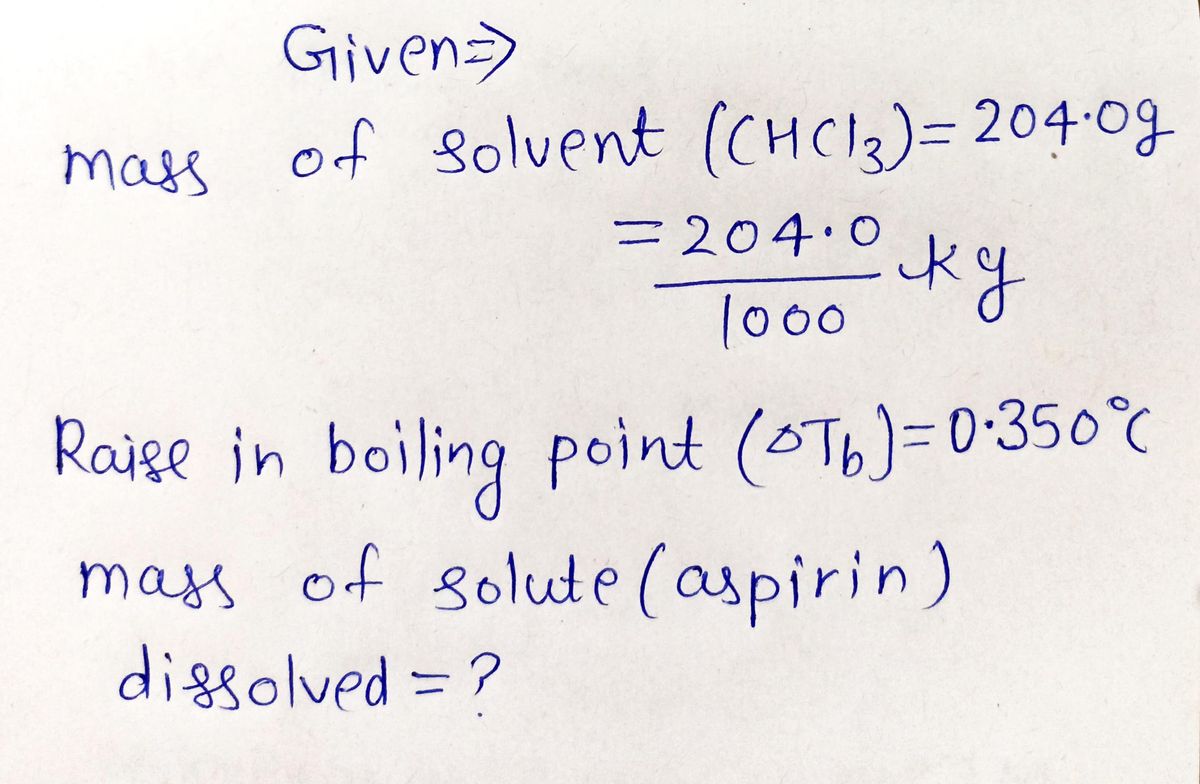 Given⇒
mass of solvent (CHCl₃)= 204.0g
= 204.0/1000 kg
Raise in boiling point (ΔTb)=0.350°C
mass of solute (aspirin)
dissolved = ?